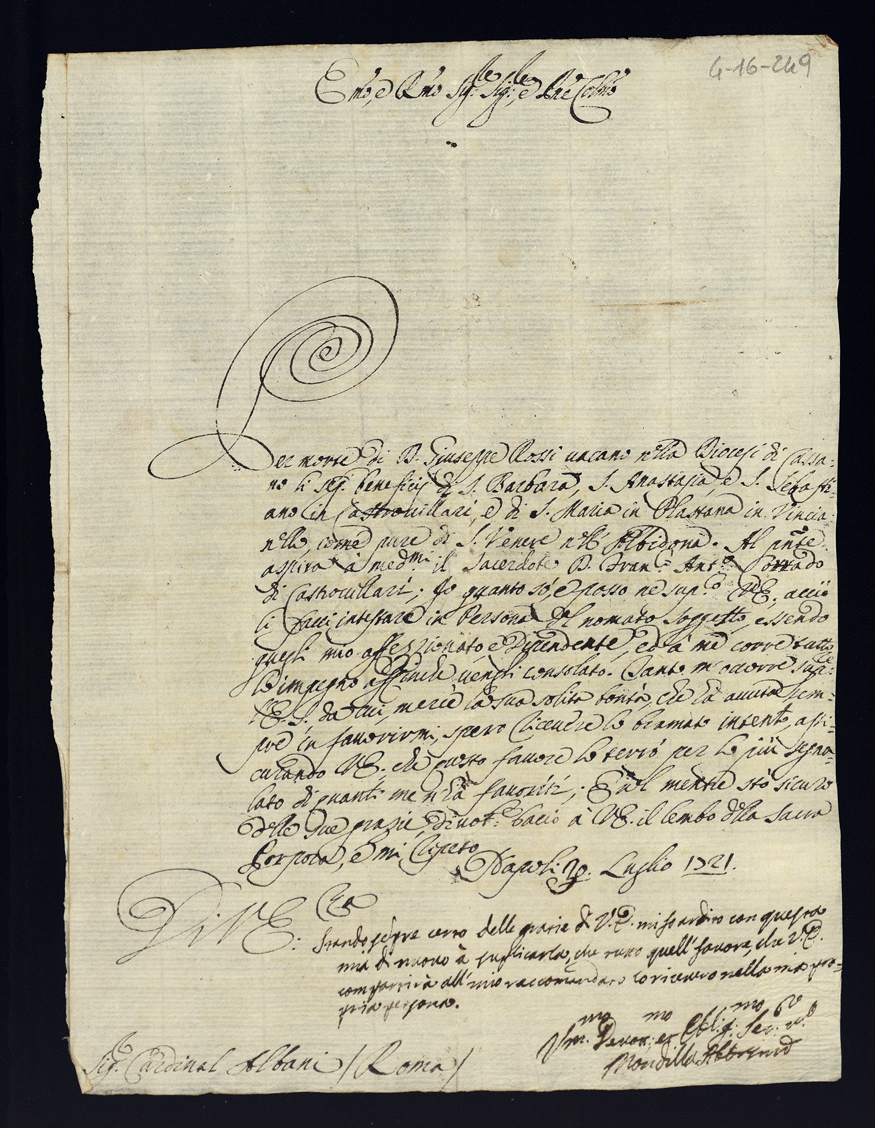 4-16-249
Em̃o, e Rm̃o Sig.re Sig.re, e Pñe Col.mo
Per morte di D. Giuseppe Rossi vacano nella Diocesi di Cassa=
no li seg.ti beneficij di S. Barbara, S. Anastasia, e S. Sebasti=
ano in Castrovillari, e di S. Maria in Plastana in
nello, come pure di S. Venere nell' Albidona. Al pñte
aspira à med.mi il Sacerdote D. Fran.co Ant.o
di Castrovillari; Io quanto sò, e posso ne sup.co V.E., acciò
li facci intestare in Persona del nomato Soggetto, essendo
quegli mio affezzionato e Dipendente, ed à me corre tutto
l'impegno affinche venghi consolato. Tanto m'occorre
l'E.S. da cui, mercè la sua solita bontà, che hà avuta sem=
pre in favorirmi, spero ricevere lo bramato intento, assi=
curando V.E. che questo favore lo terrò per lo più segna=
lato di quanti me n'hà favoriti; E nel mentre stò sicuro
delle sue grazie, divot.e bacio à V.E. il lembo della Sacra
Porpora, e mi ripeto
Napoli 29 Luglio 1721.
Di V.E.
Stando sepre certo delle grazie di V.E. mi fo ardiro con questa
mia di nuovo à suplicarla, che tutto quell' favore, che V.E.
compartirà all' mio raccomandato lo ricevero nella mia pro=
pria persona.
Um.mo Devot.mo et Obl.mo Ser.re v.o
Mondilla
Sig.r Cardinal Albani / Roma /